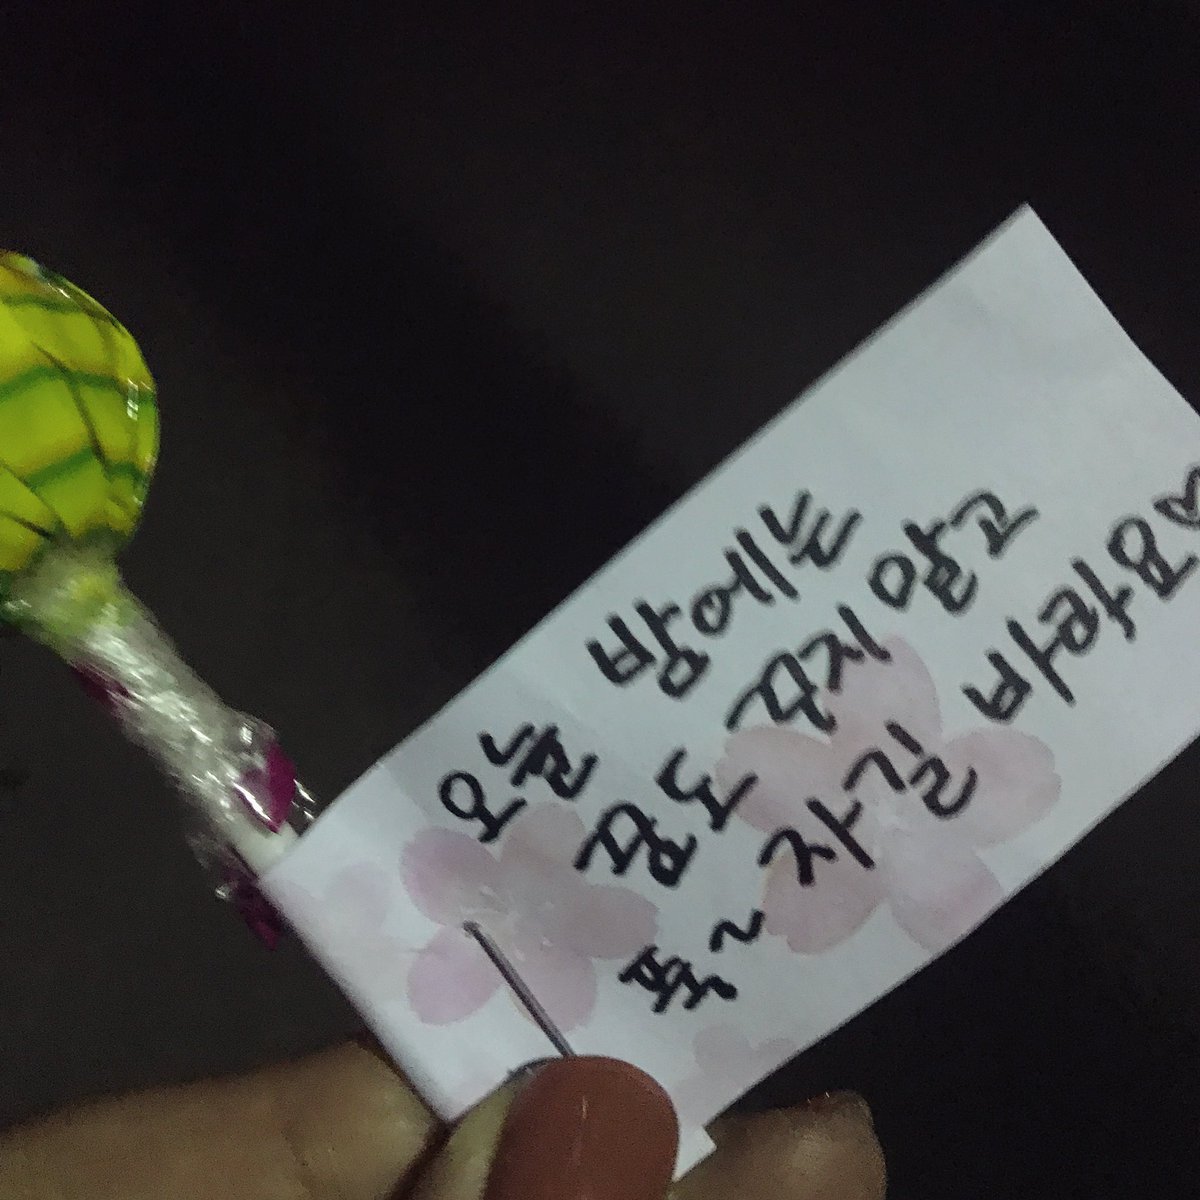 오늘 밤에는
꿈도 꾸지 말고
푹~ 자길 바라요♡